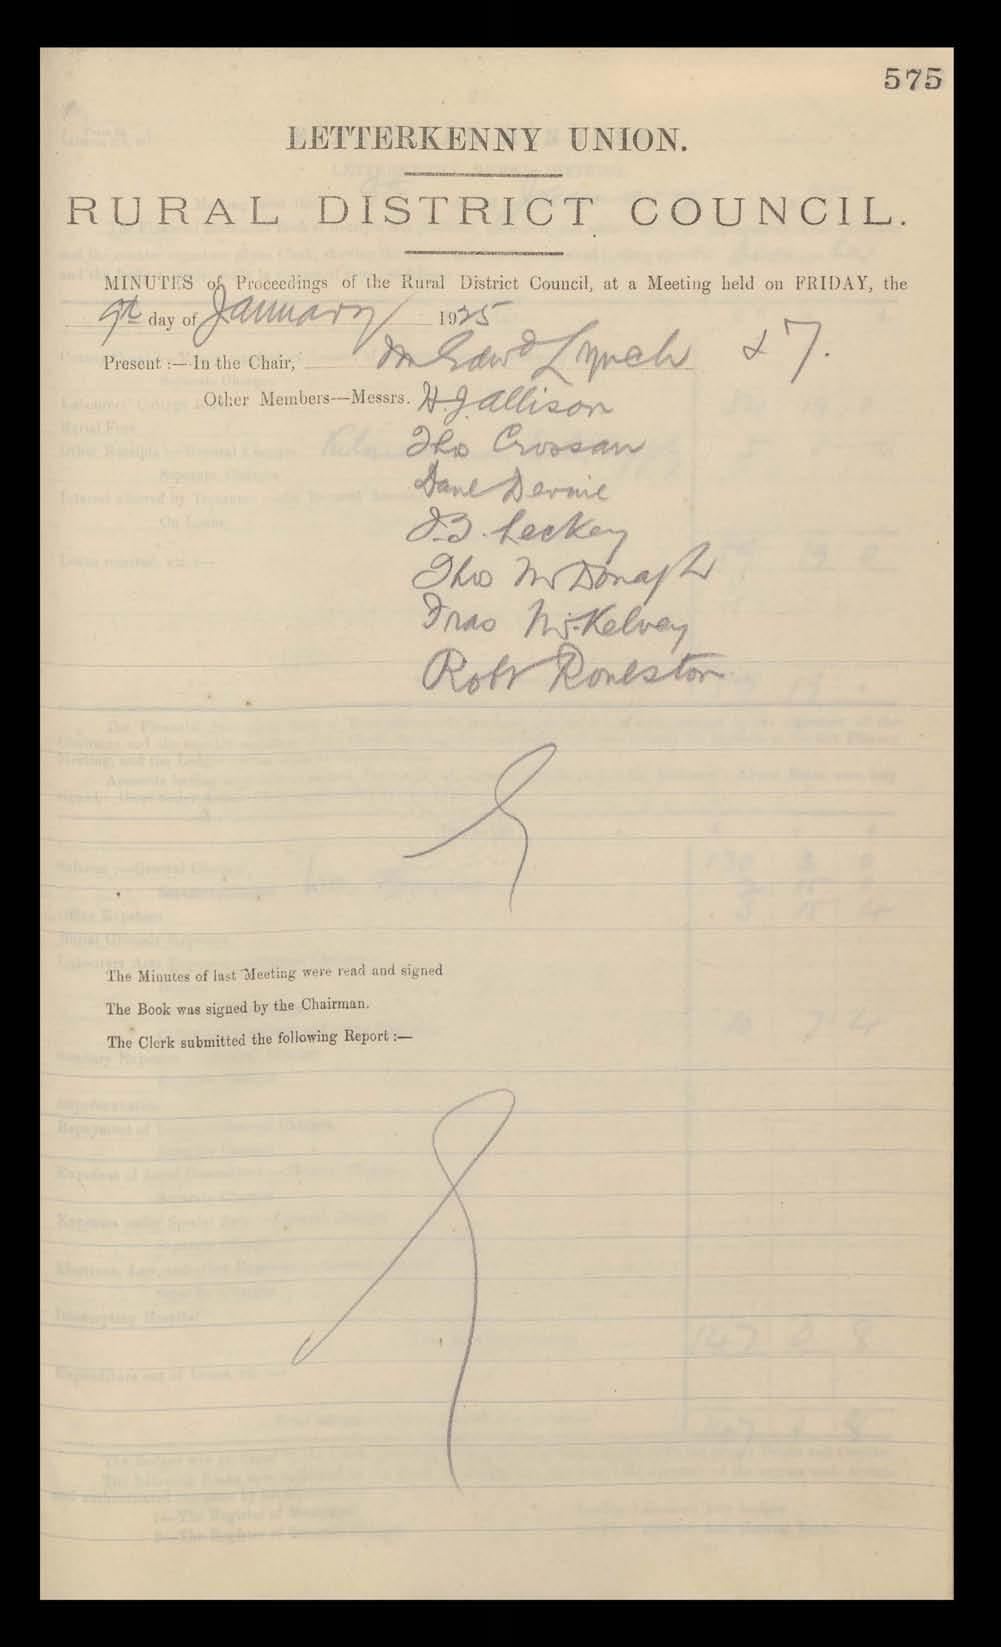 575
LETTERKENNY UNION.
RURAL DISTRICT COUNCIL.
MINUTES of Proceedings of the Rural District Council, at a Meeting held on FRIDAY, the
9th day of January 1925
Present :—In the Chair, Mr Edwd Lynch & 7.
Other Members—Messrs. H. J. Allison
Thos Crossan
Danl Devine
J. B. Leckey
Thos McDonagh
Fras McKelvey
Robt Roulston
The Minutes of last Meeting were read and signed
The Book was signed by the Chairman.
The Clerk submitted the following Report :—